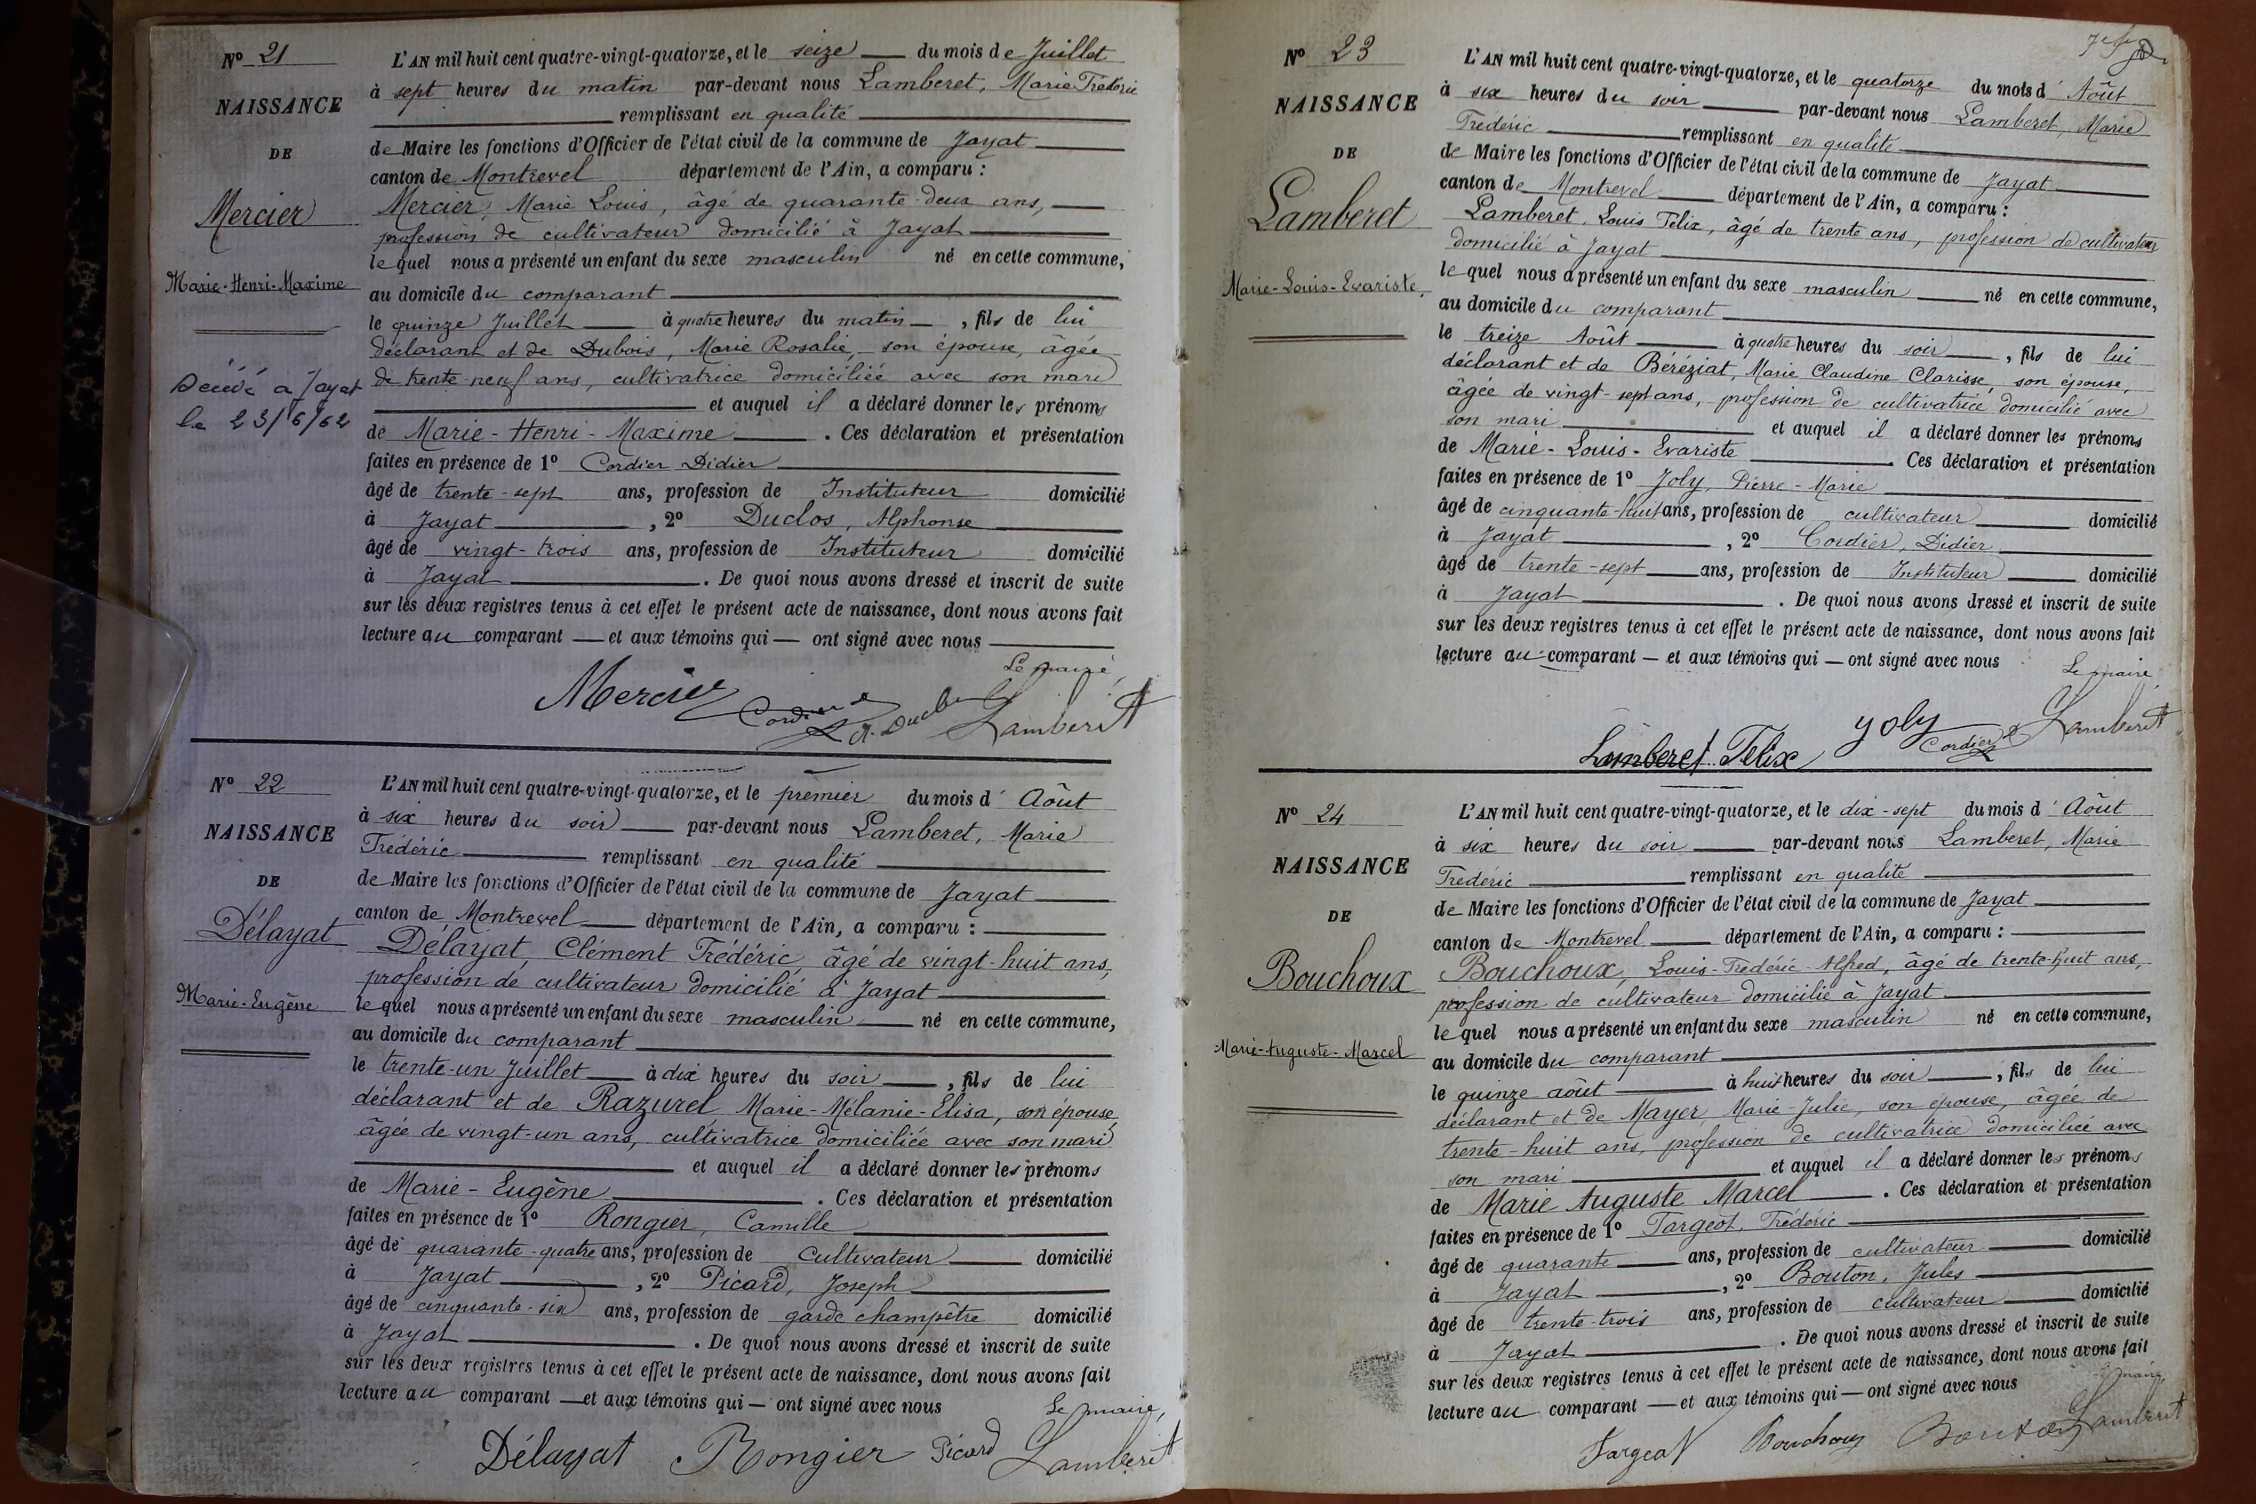 N° 21
NAISSANCE
DE
Mercier
Marie-Henri-Maxime
Décédé à Jayat
le 23/6/62
L'AN mil huit cent quatre-vingt-quatorze, et le seize du mois de Juillet
à sept heures du matin par-devant nous Lamberet, Marie Frédéric
remplissant en qualité
de Maire les fonctions d'Officier de l'état civil de la commune de Jayat
canton de Montrevel département de l'Ain, a comparu :
Mercier, Marie Louis, âgé de quarante-deux ans,
profession de cultivateur domicilié à Jayat
lequel nous a présenté un enfant du sexe masculin né en cette commune,
au domicile du comparant
le quinze Juillet à quatre heures du matin, fils de lui
déclarant et de Dubois, Marie Rosalie, son épouse, âgée
de trente-neuf ans, cultivatrice domiciliée avec son mari
et auquel il a déclaré donner les prénoms
de Marie-Henri-Maxime. Ces déclaration et présentation
faites en présence de 1° Cordier Didier
âgé de trente-sept ans, profession de Instituteur domicilié
à Jayat, 2° Duclos, Alphonse
âgé de vingt-trois ans, profession de Instituteur domicilié
à Jayat. De quoi nous avons dressé et inscrit de suite
sur les deux registres tenus à cet effet le présent acte de naissance, dont nous avons fait
lecture au comparant — et aux témoins qui — ont signé avec nous
Le maire,
Mercier Cordier A. Duclos Lamberet
N° 22
NAISSANCE
DE
Délayat
Marie-Eugène
L'AN mil huit cent quatre-vingt-quatorze, et le premier du mois d'Août
à six heures du soir par-devant nous Lamberet, Marie
Frédéric remplissant en qualité
de Maire les fonctions d'Officier de l'état civil de la commune de Jayat
canton de Montrevel département de l'Ain, a comparu :
Délayat, Clément Frédéric âgé de vingt-huit ans,
profession de cultivateur domicilié à Jayat
lequel nous a présenté un enfant du sexe masculin né en cette commune,
au domicile du comparant
le trente-un Juillet à dix heures du soir, fils de lui
déclarant et de Razurel Marie-Mélanie-Elisa, son épouse
âgée de vingt-un ans, cultivatrice domiciliée avec son mari
et auquel il a déclaré donner les prénoms
de Marie-Eugène. Ces déclaration et présentation
faites en présence de 1° Rongier, Camille
âgé de quarante-quatre ans, profession de Cultivateur domicilié
à Jayat, 2° Picard, Joseph
âgé de cinquante-six ans, profession de garde champêtre domicilié
à Jayat. De quoi nous avons dressé et inscrit de suite
sur les deux registres tenus à cet effet le présent acte de naissance, dont nous avons fait
lecture au comparant — et aux témoins qui — ont signé avec nous
Le maire,
Délayat Rongier Picard Lamberet
N° 23
NAISSANCE
DE
Lamberet
Marie-Louis-Evariste
L'AN mil huit cent quatre-vingt-quatorze, et le quatorze du mois d'Août
à six heures du soir par-devant nous Lamberet, Marie
Frédéric remplissant en qualité
de Maire les fonctions d'Officier de l'état civil de la commune de Jayat
canton de Montrevel département de l'Ain, a comparu :
Lamberet, Louis Félix, âgé de trente ans, profession de cultivateur
domicilié à Jayat
lequel nous a présenté un enfant du sexe masculin né en cette commune,
au domicile du comparant
le treize Août à quatre heures du soir, fils de lui
déclarant et de Béréziat, Marie Claudine Clarisse, son épouse,
âgée de vingt-sept ans, profession de cultivatrice domicilié avec
son mari et auquel il a déclaré donner les prénoms
de Marie-Louis-Evariste. Ces déclaration et présentation
faites en présence de 1° Joly, Pierre-Marie
âgé de cinquante-huit ans, profession de cultivateur domicilié
à Jayat, 2° Cordier, Didier
âgé de trente-sept ans, profession de Instituteur domicilié
à Jayat. De quoi nous avons dressé et inscrit de suite
sur les deux registres tenus à cet effet le présent acte de naissance, dont nous avons fait
lecture au comparant — et aux témoins qui — ont signé avec nous
Le maire
Lamberet Félix Joly Cordier Lamberet
N° 24
NAISSANCE
DE
Bouchoux
Marie-Auguste-Marcel
L'AN mil huit cent quatre-vingt-quatorze, et le dix-sept du mois d'Août
à six heures du soir par-devant nous Lamberet, Marie
Frédéric remplissant en qualité
de Maire les fonctions d'Officier de l'état civil de la commune de Jayat
canton de Montrevel département de l'Ain, a comparu :
Bouchoux, Louis-Frédéric-Alfred, âgé de trente-huit ans,
profession de cultivateur domicilié à Jayat
lequel nous a présenté un enfant du sexe masculin né en cette commune,
au domicile du comparant
le quinze août à huit heures du soir, fils de lui
déclarant et de Mayer, Marie-Julie, son épouse, âgée de
trente-huit ans, profession de cultivatrice domiciliée avec
son mari et auquel il a déclaré donner les prénoms
de Marie Auguste Marcel. Ces déclaration et présentation
faites en présence de 1° Fargeot, Frédéric
âgé de quarante ans, profession de cultivateur domicilié
à Jayat, 2° Bouton, Jules
âgé de trente-trois ans, profession de cultivateur domicilié
à Jayat. De quoi nous avons dressé et inscrit de suite
sur les deux registres tenus à cet effet le présent acte de naissance, dont nous avons fait
lecture au comparant — et aux témoins qui — ont signé avec nous
maire
Fargeot Bouchoux Bouton Lamberet